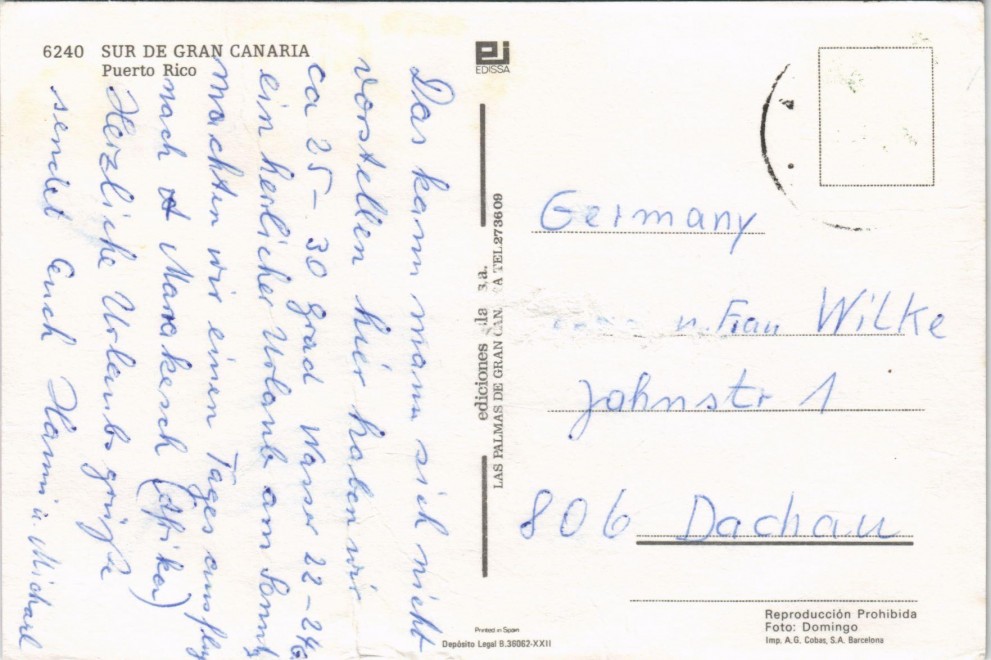 6240 SUR DE GRAN CANARIA
Puerto Rico
Das kann mann sich nicht
vorstellen hier haben wir
ca 25 - 30 grad Wasser 22 - 24G.
ein herlicher Urlaub am Sonntg
machten wir einen Tages ausflug
nach Marakesch (Afrika)
Herzliche Urlaubs grüße
sendet Euch Hanni u. Michael
EDISSA
ediciones s.a.
LAS PALMAS DE GRAN TEL 273609
Germany
u. Frau Wilke
Johnstr 1
806 Dachau
Printed in Spain
Depósito Legal B.36062-XXII
Reproducción Prohibida
Foto: Domingo
Imp. A.G. Cobas, S.A. Barcelona